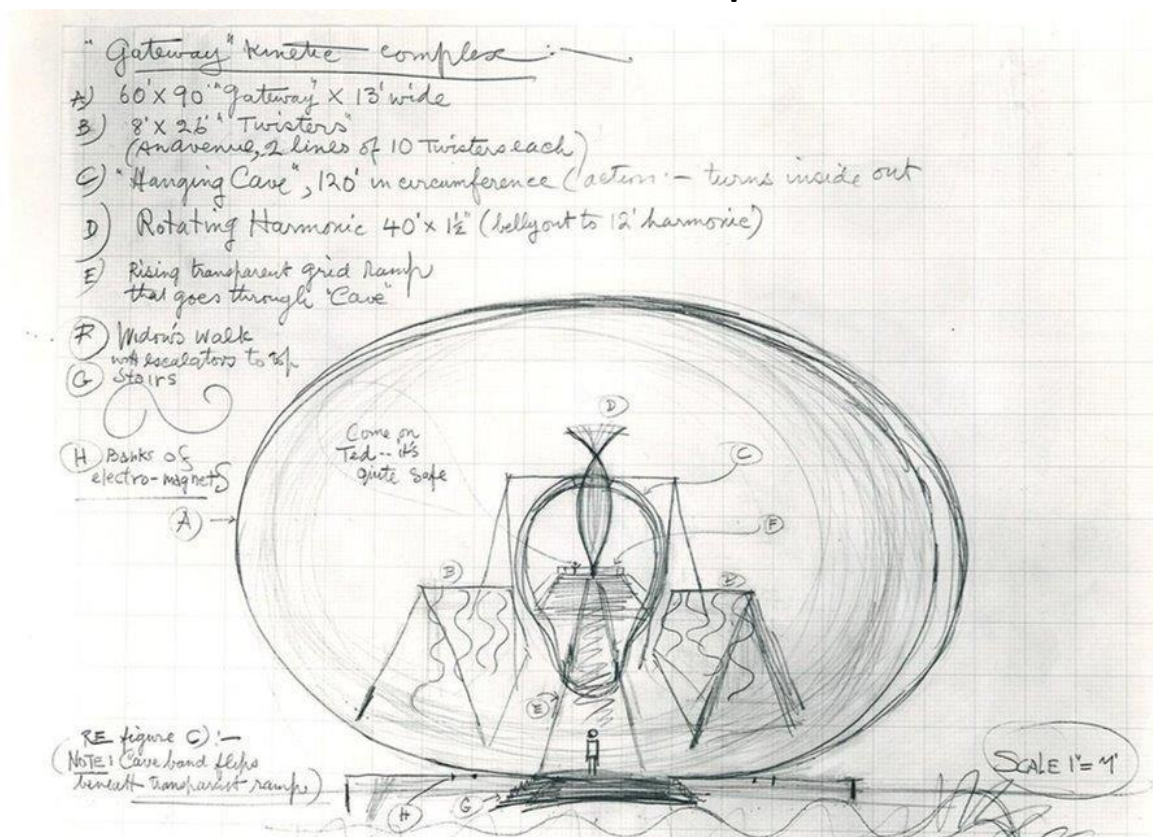 "Gateway" kinetic complex :—
A) 60' x 90' "Gateway" x 13' wide
B) 8' x 26' "Twisters"
(An avenue, 2 lines of 10 Twisters each)
C) "Hanging Cave", 120' in circumference (action :— turns inside out
D) Rotating Harmonic 40' x 1½" (belly out to 12' harmonic)
E) Rising transparent grid ramp
that goes through "Cave"
F) Widow's walk
with escalators to top
G) Stairs
H Banks of
electro-magnets
A
Come on
Ted -- it's
quite safe
D
C
F
B
B
E
RE figure C) :—
(NOTE: Cave band flips
beneath transparent ramp)
H
G
SCALE 1" =